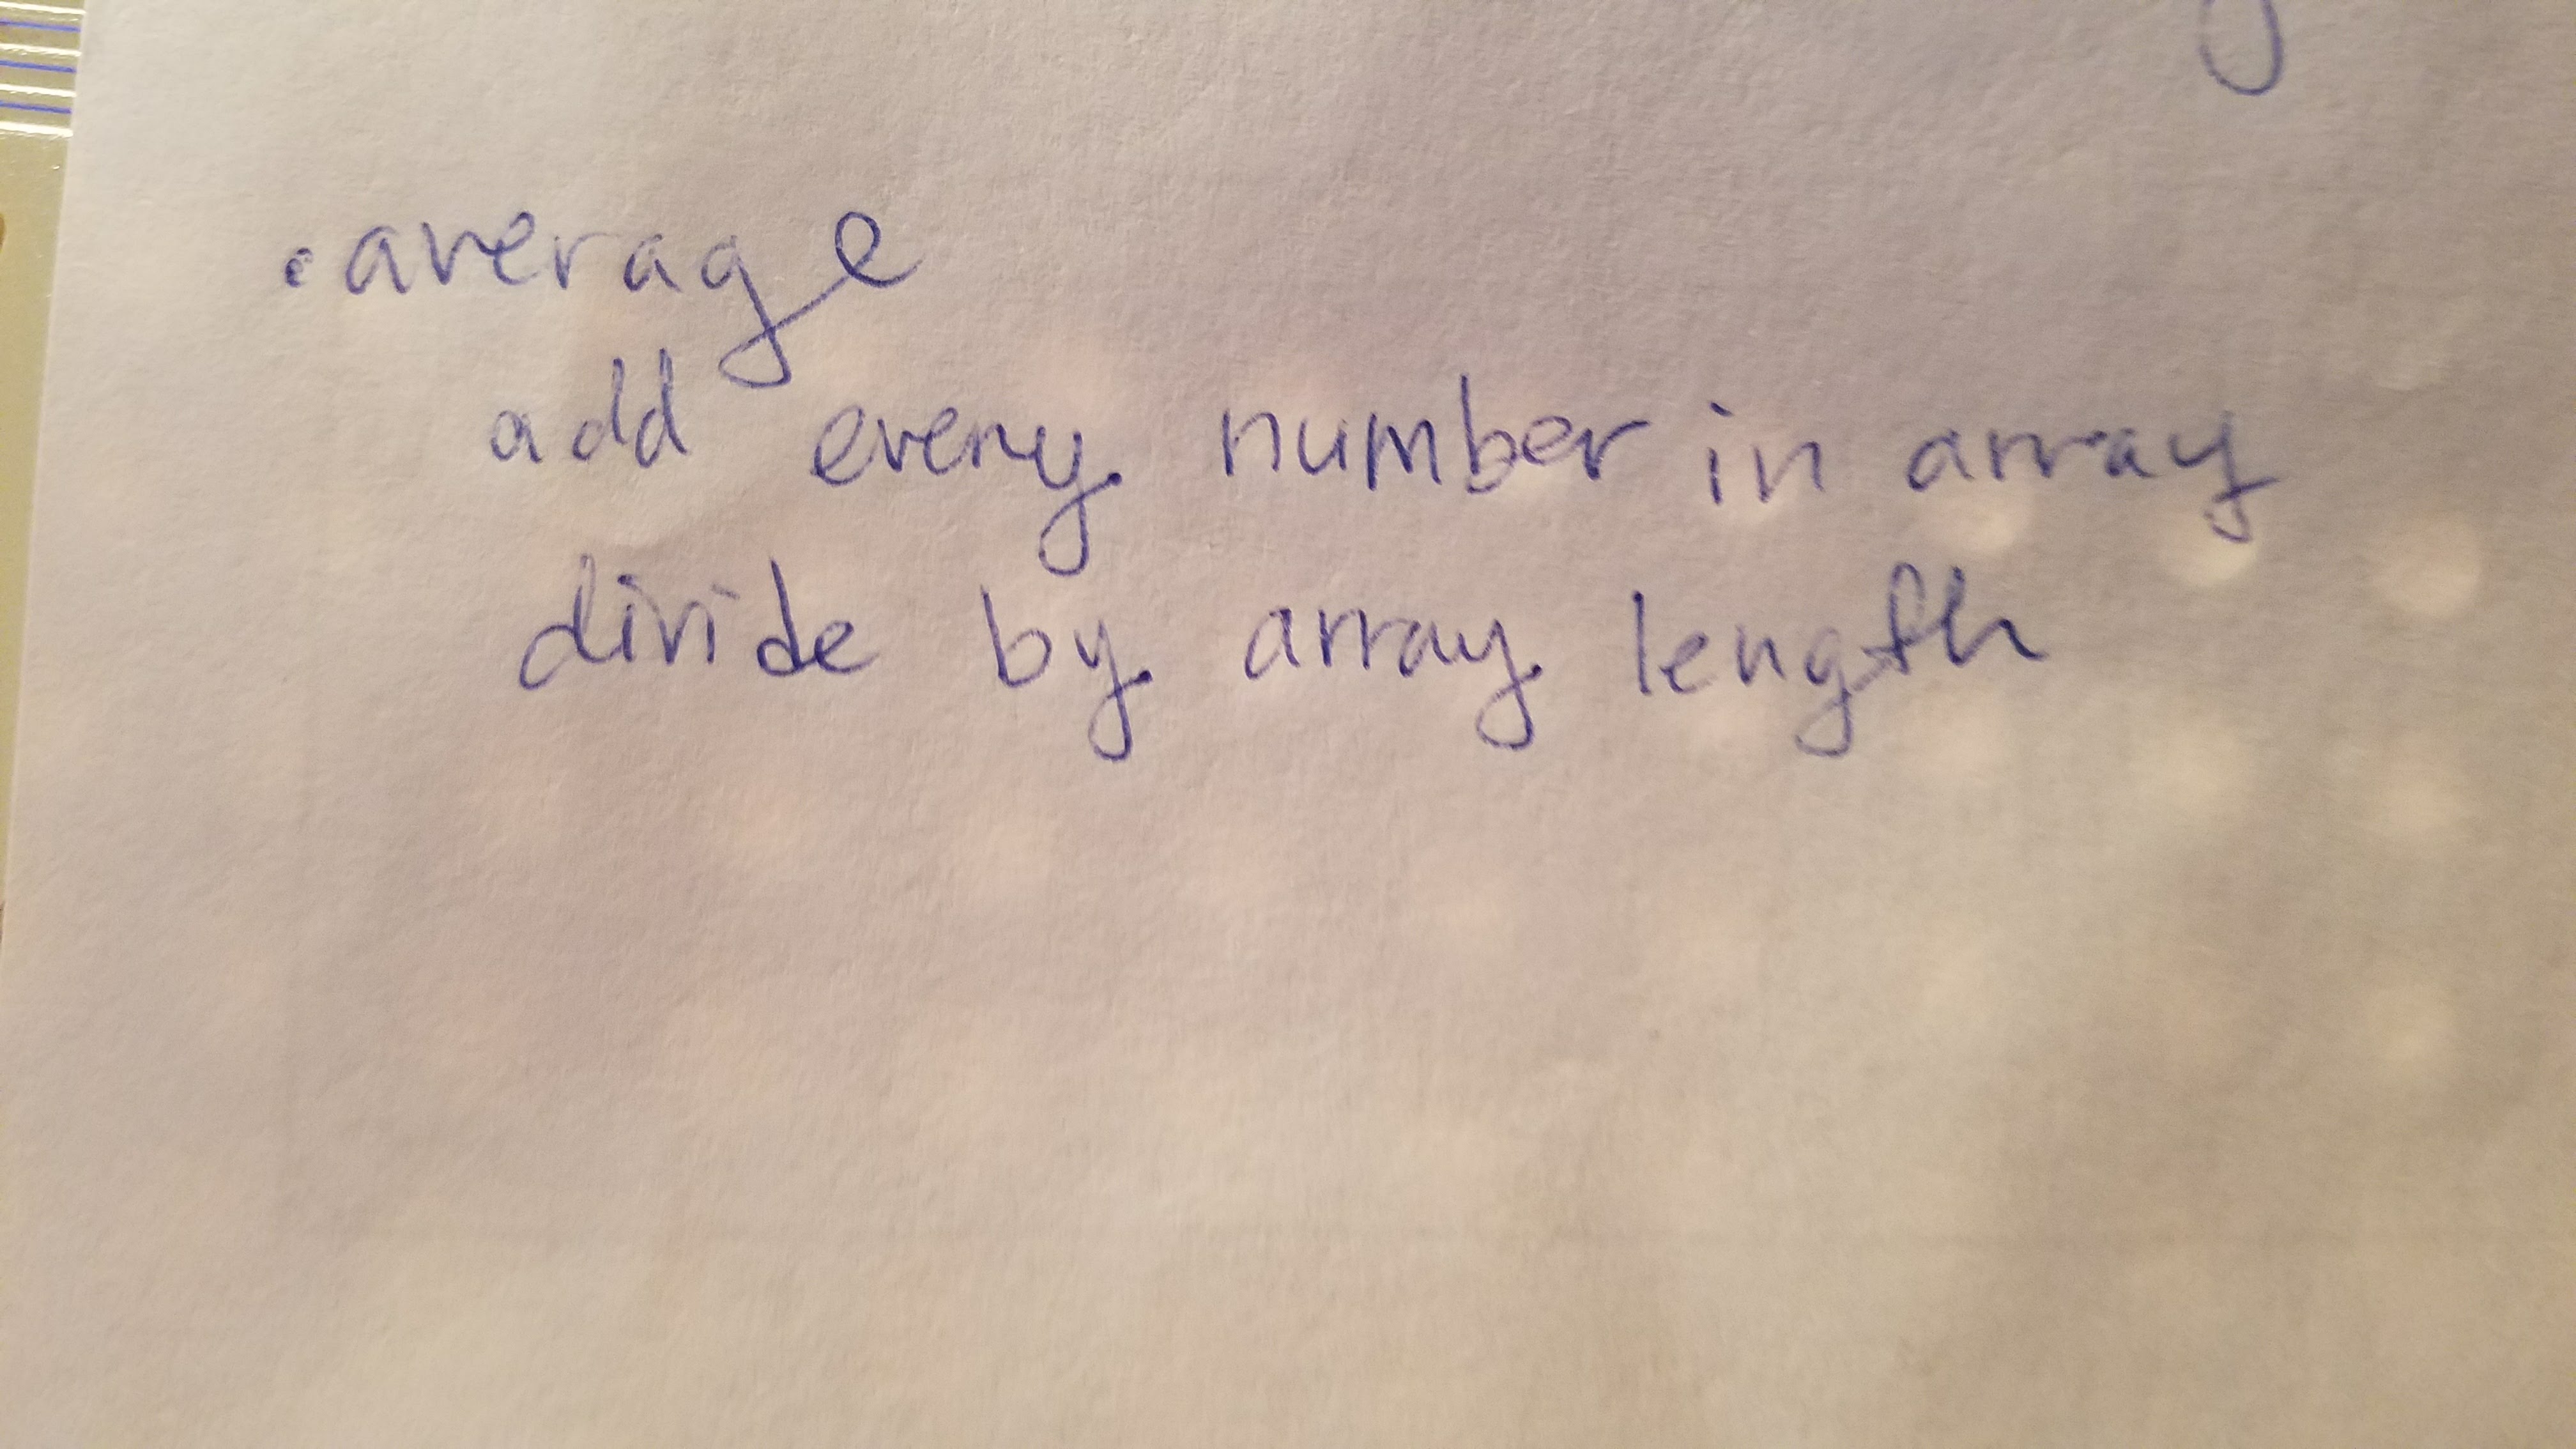 • average
add every number in array
divide by array length